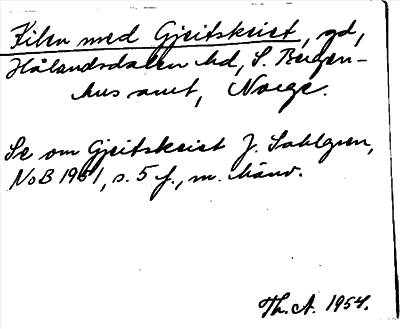 Kilen med Gjeitskreist, gd,
Hålandsdalen hd, S. Bergen-
hus amt, Norge.
Se om Gjeitskreist J. Sahlgren,
NoB 1951, s. 5 f., m. hänv.
Th. A. 1954.